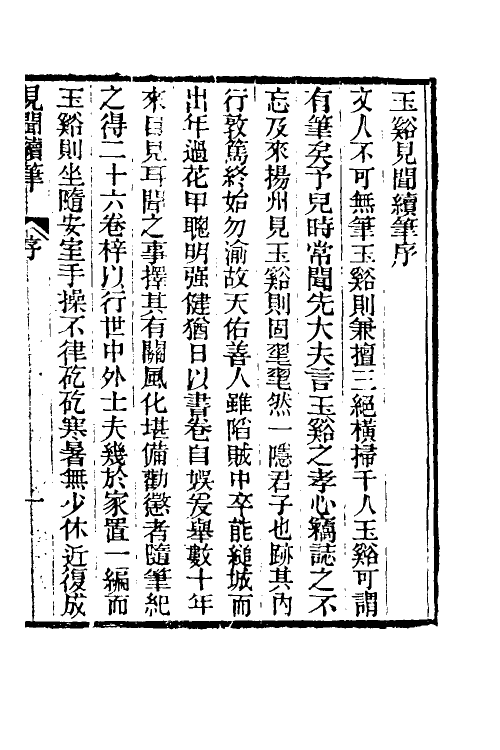 玉谿見聞續筆序
文人不可無筆玉谿則兼擅三絕橫掃千人玉谿可謂
有筆矣予兒時常聞先大夫言玉谿之孝心竊誌之不
忘及來揚州見玉谿則固粥粥然一隱君子也跡其內
行敦篤終始勿渝故天佑善人雖陷賊中卒能縋城而
出年過花甲聰明强健猶日以書卷自娛爰舉數十年
來目見耳聞之事擇其有關風化堪備勸懲者隨筆紀
之得二十六卷梓以行世中外士夫幾於家置一編而
玉谿則坐隨安室手操不律矻矻寒暑無少休近復成
見聞續筆
序
一